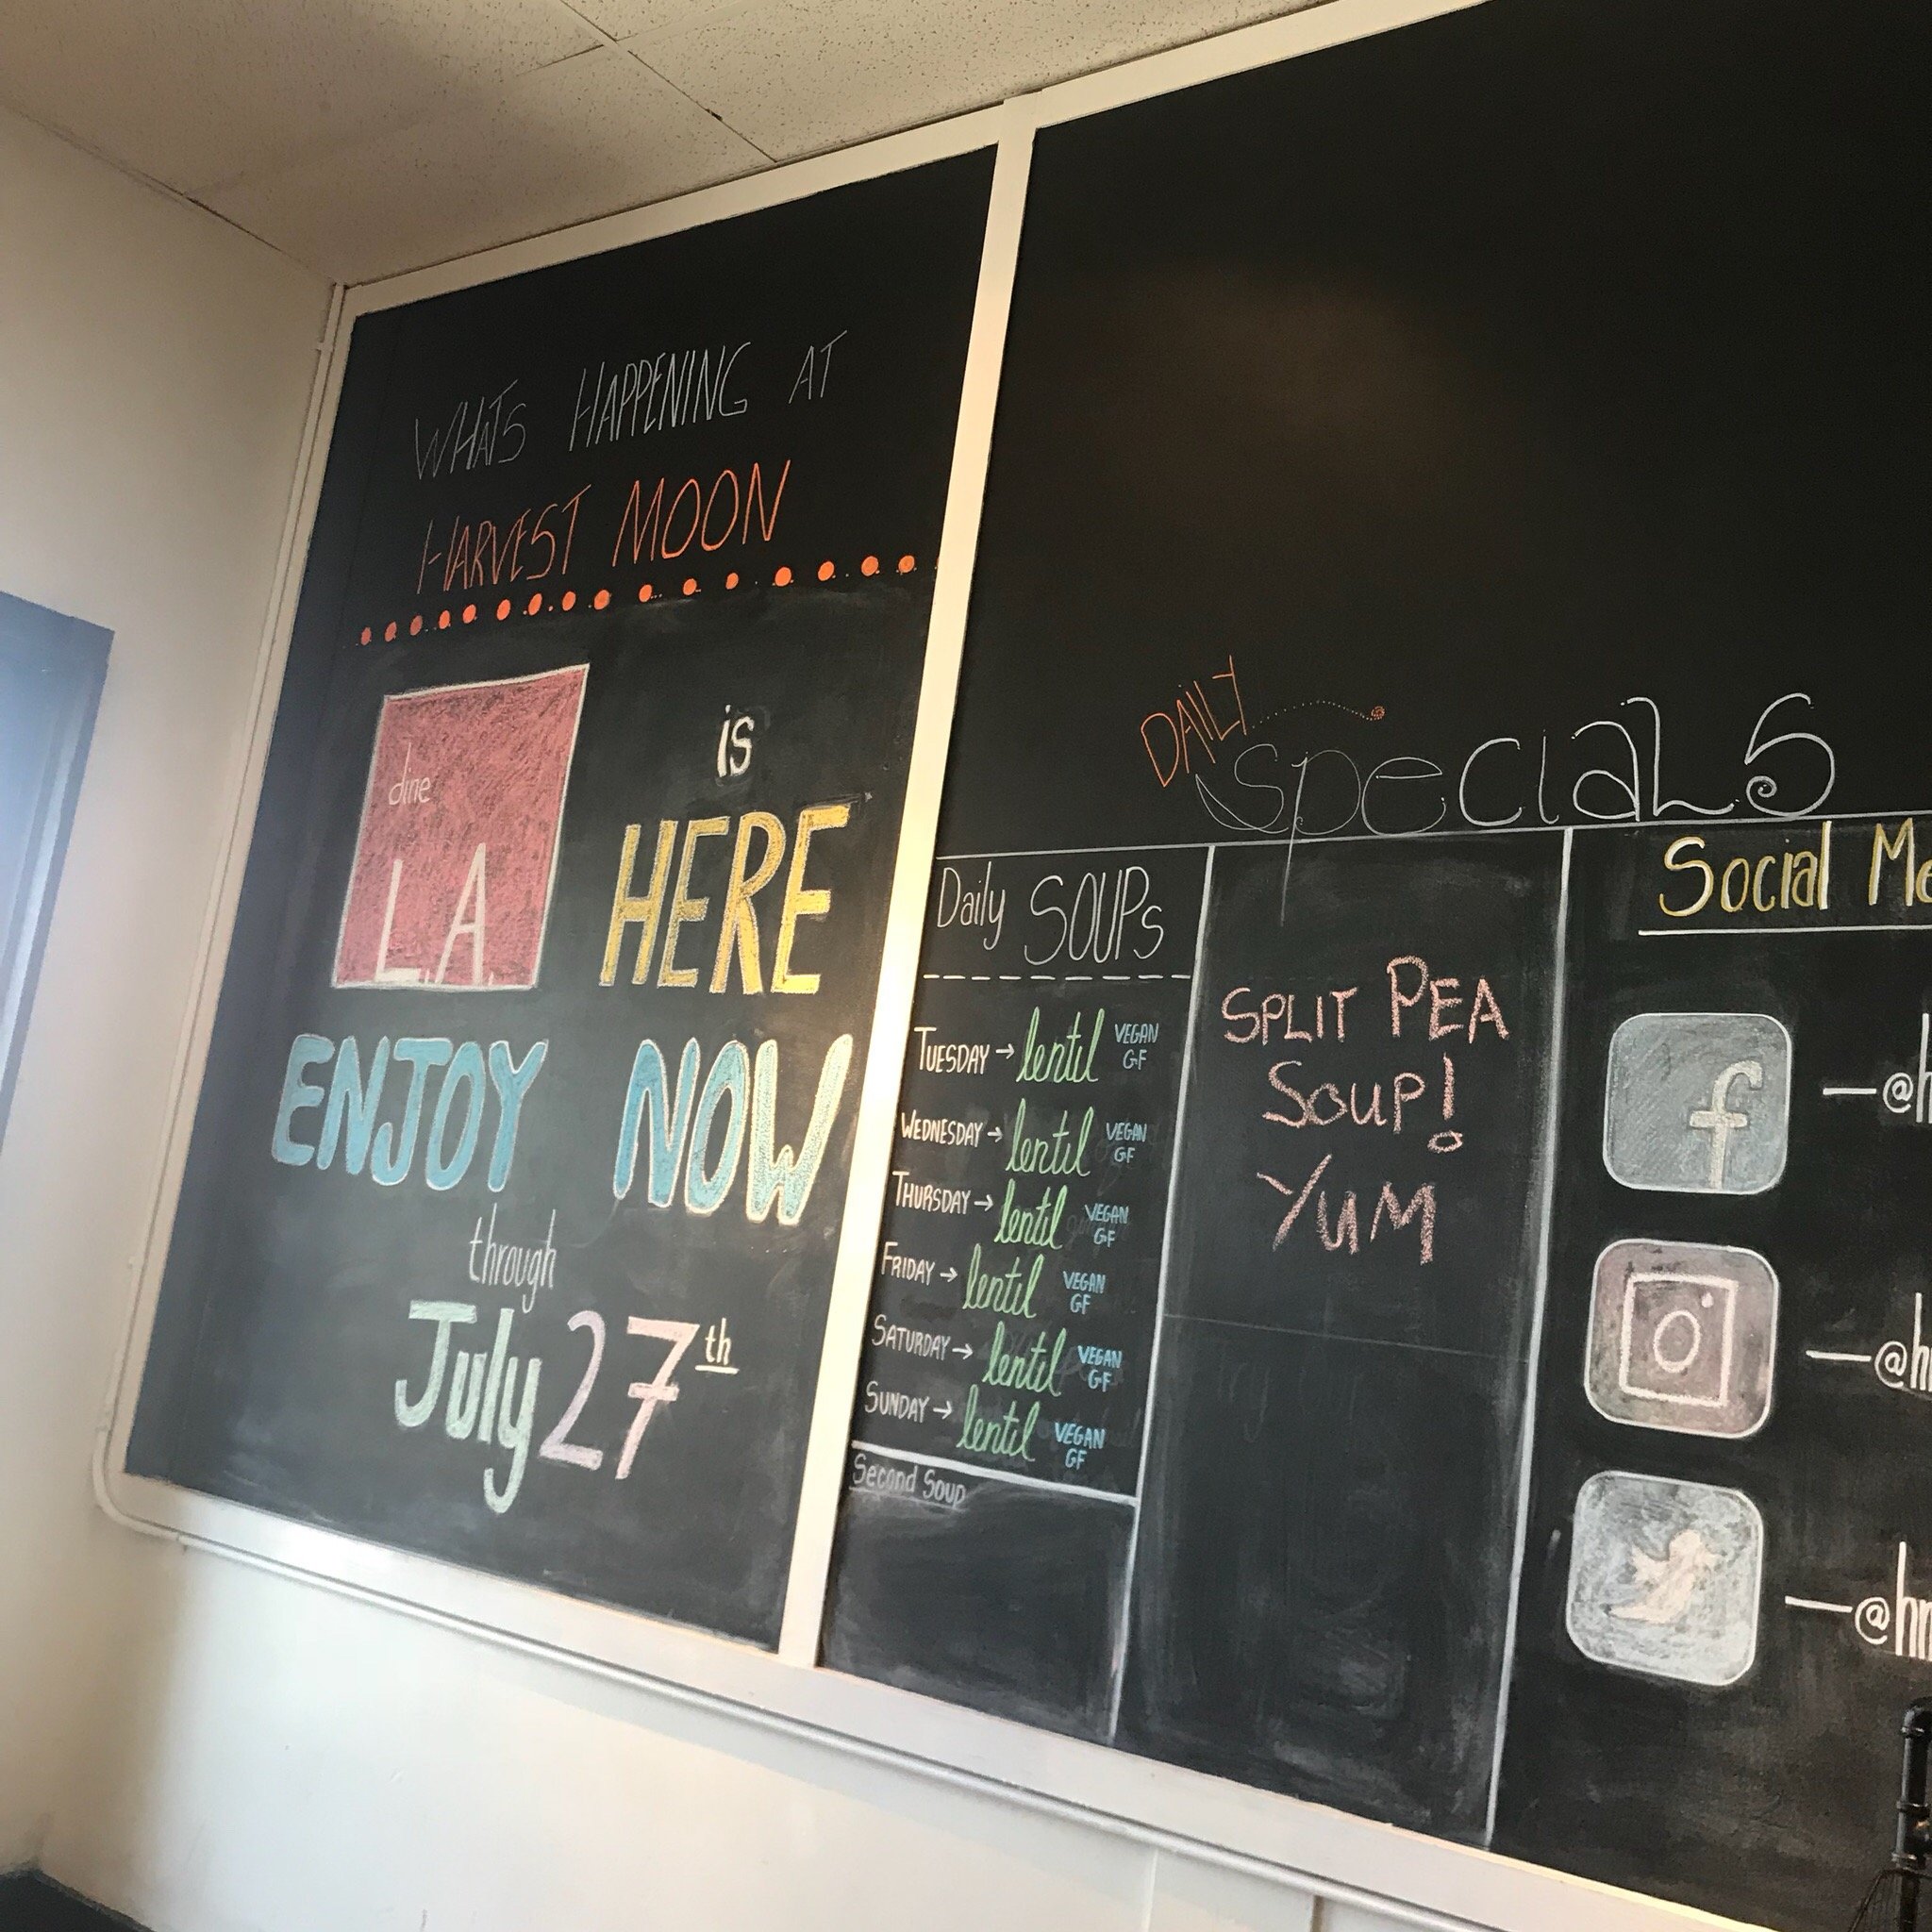 WHATS HAPPENING AT
HARVEST MOON
dine
L.A.
is
HERE
ENJOY NOW
through
July 27th
DAILY
specials
Daily SOUPs
TUESDAY → lentil VEGAN GF
WEDNESDAY → lentil VEGAN GF
THURSDAY → lentil VEGAN GF
FRIDAY → lentil VEGAN GF
SATURDAY → lentil VEGAN GF
SUNDAY → lentil VEGAN GF
Second Soup
SPLIT PEA
SOUP!
YUM
Social Me
f
—@h
—@h
—@h